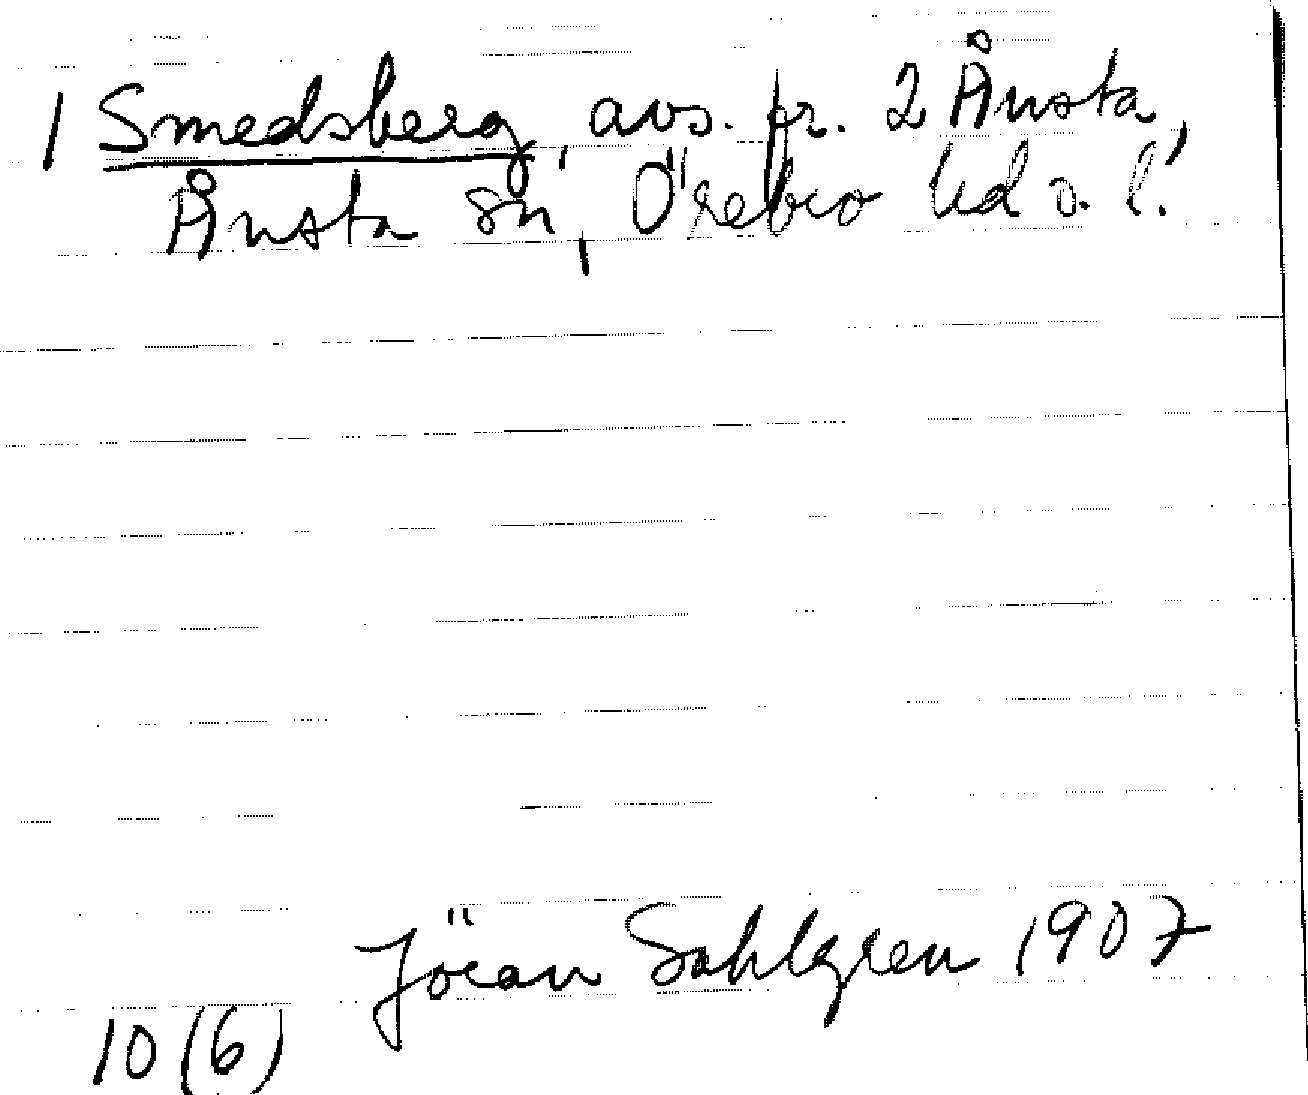 1 Smedsberg, avs. fr. 2 Ånsta,
Ånsta sn, Örebro hd o. l.
Jöran Sahlgren 1907
10 (6)